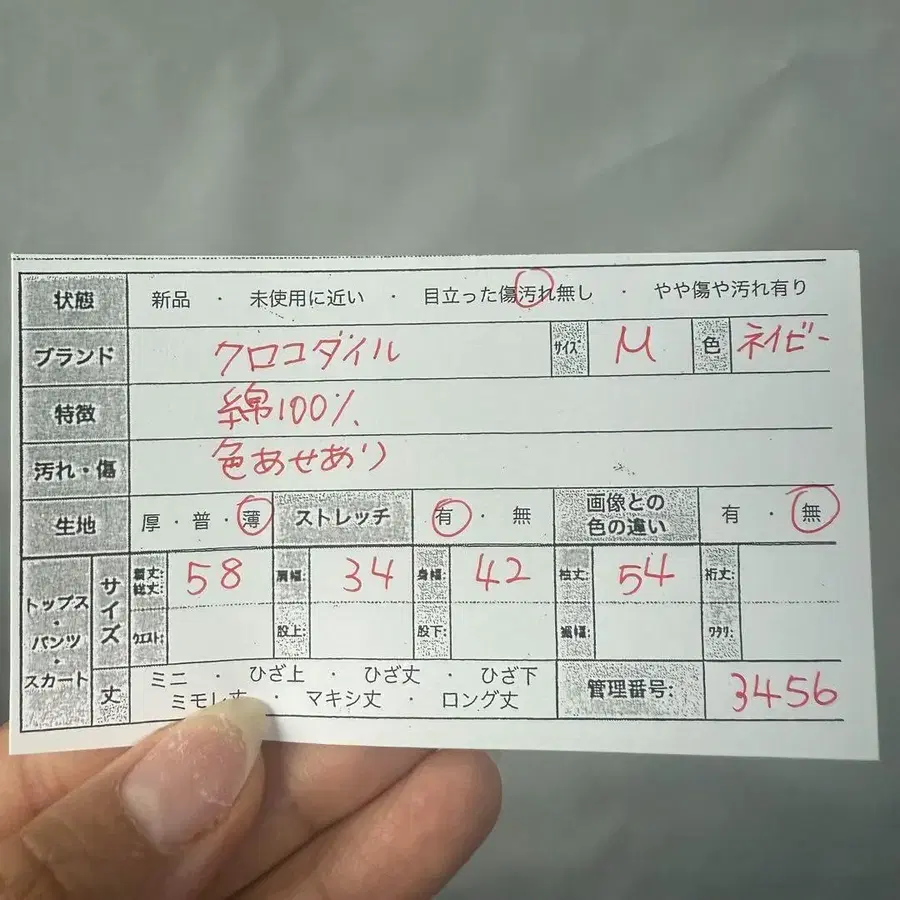 状態 新品 ・ 未使用に近い ・ 目立った傷汚れ無し ・ やや傷や汚れ有り
ブランド クロコダイル サイズ M 色 ネイビー
特徴 綿100%
汚れ・傷 色あせあり
生地 厚・普・薄 ストレッチ 有・無 画像との色の違い 有・無
トップス・パンツ・スカート サイズ 着丈:総丈: 58 肩幅: 34 身幅: 42 袖丈: 54 裄丈:
ウエスト: 股上: 股下: 裾幅: ワタリ:
丈 ミニ ・ ひざ上 ・ ひざ丈 ・ ひざ下
ミモレ丈 ・ マキシ丈 ・ ロング丈
管理番号: 3456